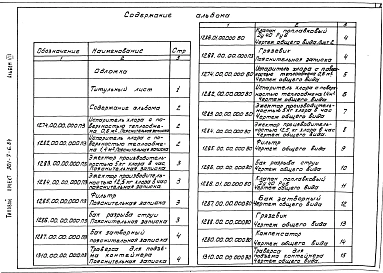 Содержание альбома
Обозначение Наименование Стр
1 2 3
Обложка
Титульный лист 1
Содержание альбома 2
1274.00.00.000 ПЗ Испаритель хлора с поверхностью теплообмена 0,8 м². Пояснительная записка
1282.00.00.000 ПЗ Испаритель хлора с поверхностью теплообмена Пояснительная записка
1283.00.00.000 ПЗ Эжектор производительностью 5 кг хлора в час Пояснительная записка 3
1284.00.00.000 ПЗ Эжектор производительностью 12,5 кг хлора в час Пояснительная записка 3
1285.00.00.000 ПЗ Фильтр Пояснительная записка 3
1286.00.00.000 ПЗ Бак разрыва струи Пояснительная записка
1287.00.00.000 ПЗ Бак затворный Пояснительная записка 4
1310.00.00.000 ПЗ Траверса для подъема контейнера Пояснительная записка 4
1 2 3
Клапан поплавковый Чертеж общего вида 4
Грязевик Пояснительная записка 4
1274.00.00.000 ВО Испаритель хлора с поверхностью теплообмена 0,8 м² Чертеж общего вида 5
1282.00.00.000 ВО Испаритель хлора с поверхностью теплообмена Чертеж общего вида 6
1283.00.00.000 ВО Эжектор производительностью 5 кг хлора в час Чертеж общего вида 7
1284.00.00.000 ВО Эжектор производительностью 12,5 кг хлора в час Чертеж общего вида 8
1285.00.00.000 ВО Фильтр Чертеж общего вида 9
1286.00.00.000 ВО Бак разрыва струи Чертеж общего вида 10
1286.01.00.000 ВО Клапан поплавковый Чертеж общего вида 11
1287.00.00.000 ВО Бак затворный Чертеж общего вида 12
Грязевик Чертеж общего вида 13
Компенсатор Чертеж общего вида 14
1310.00.00.000 ВО Траверса для подъема контейнера Чертеж общего вида 15